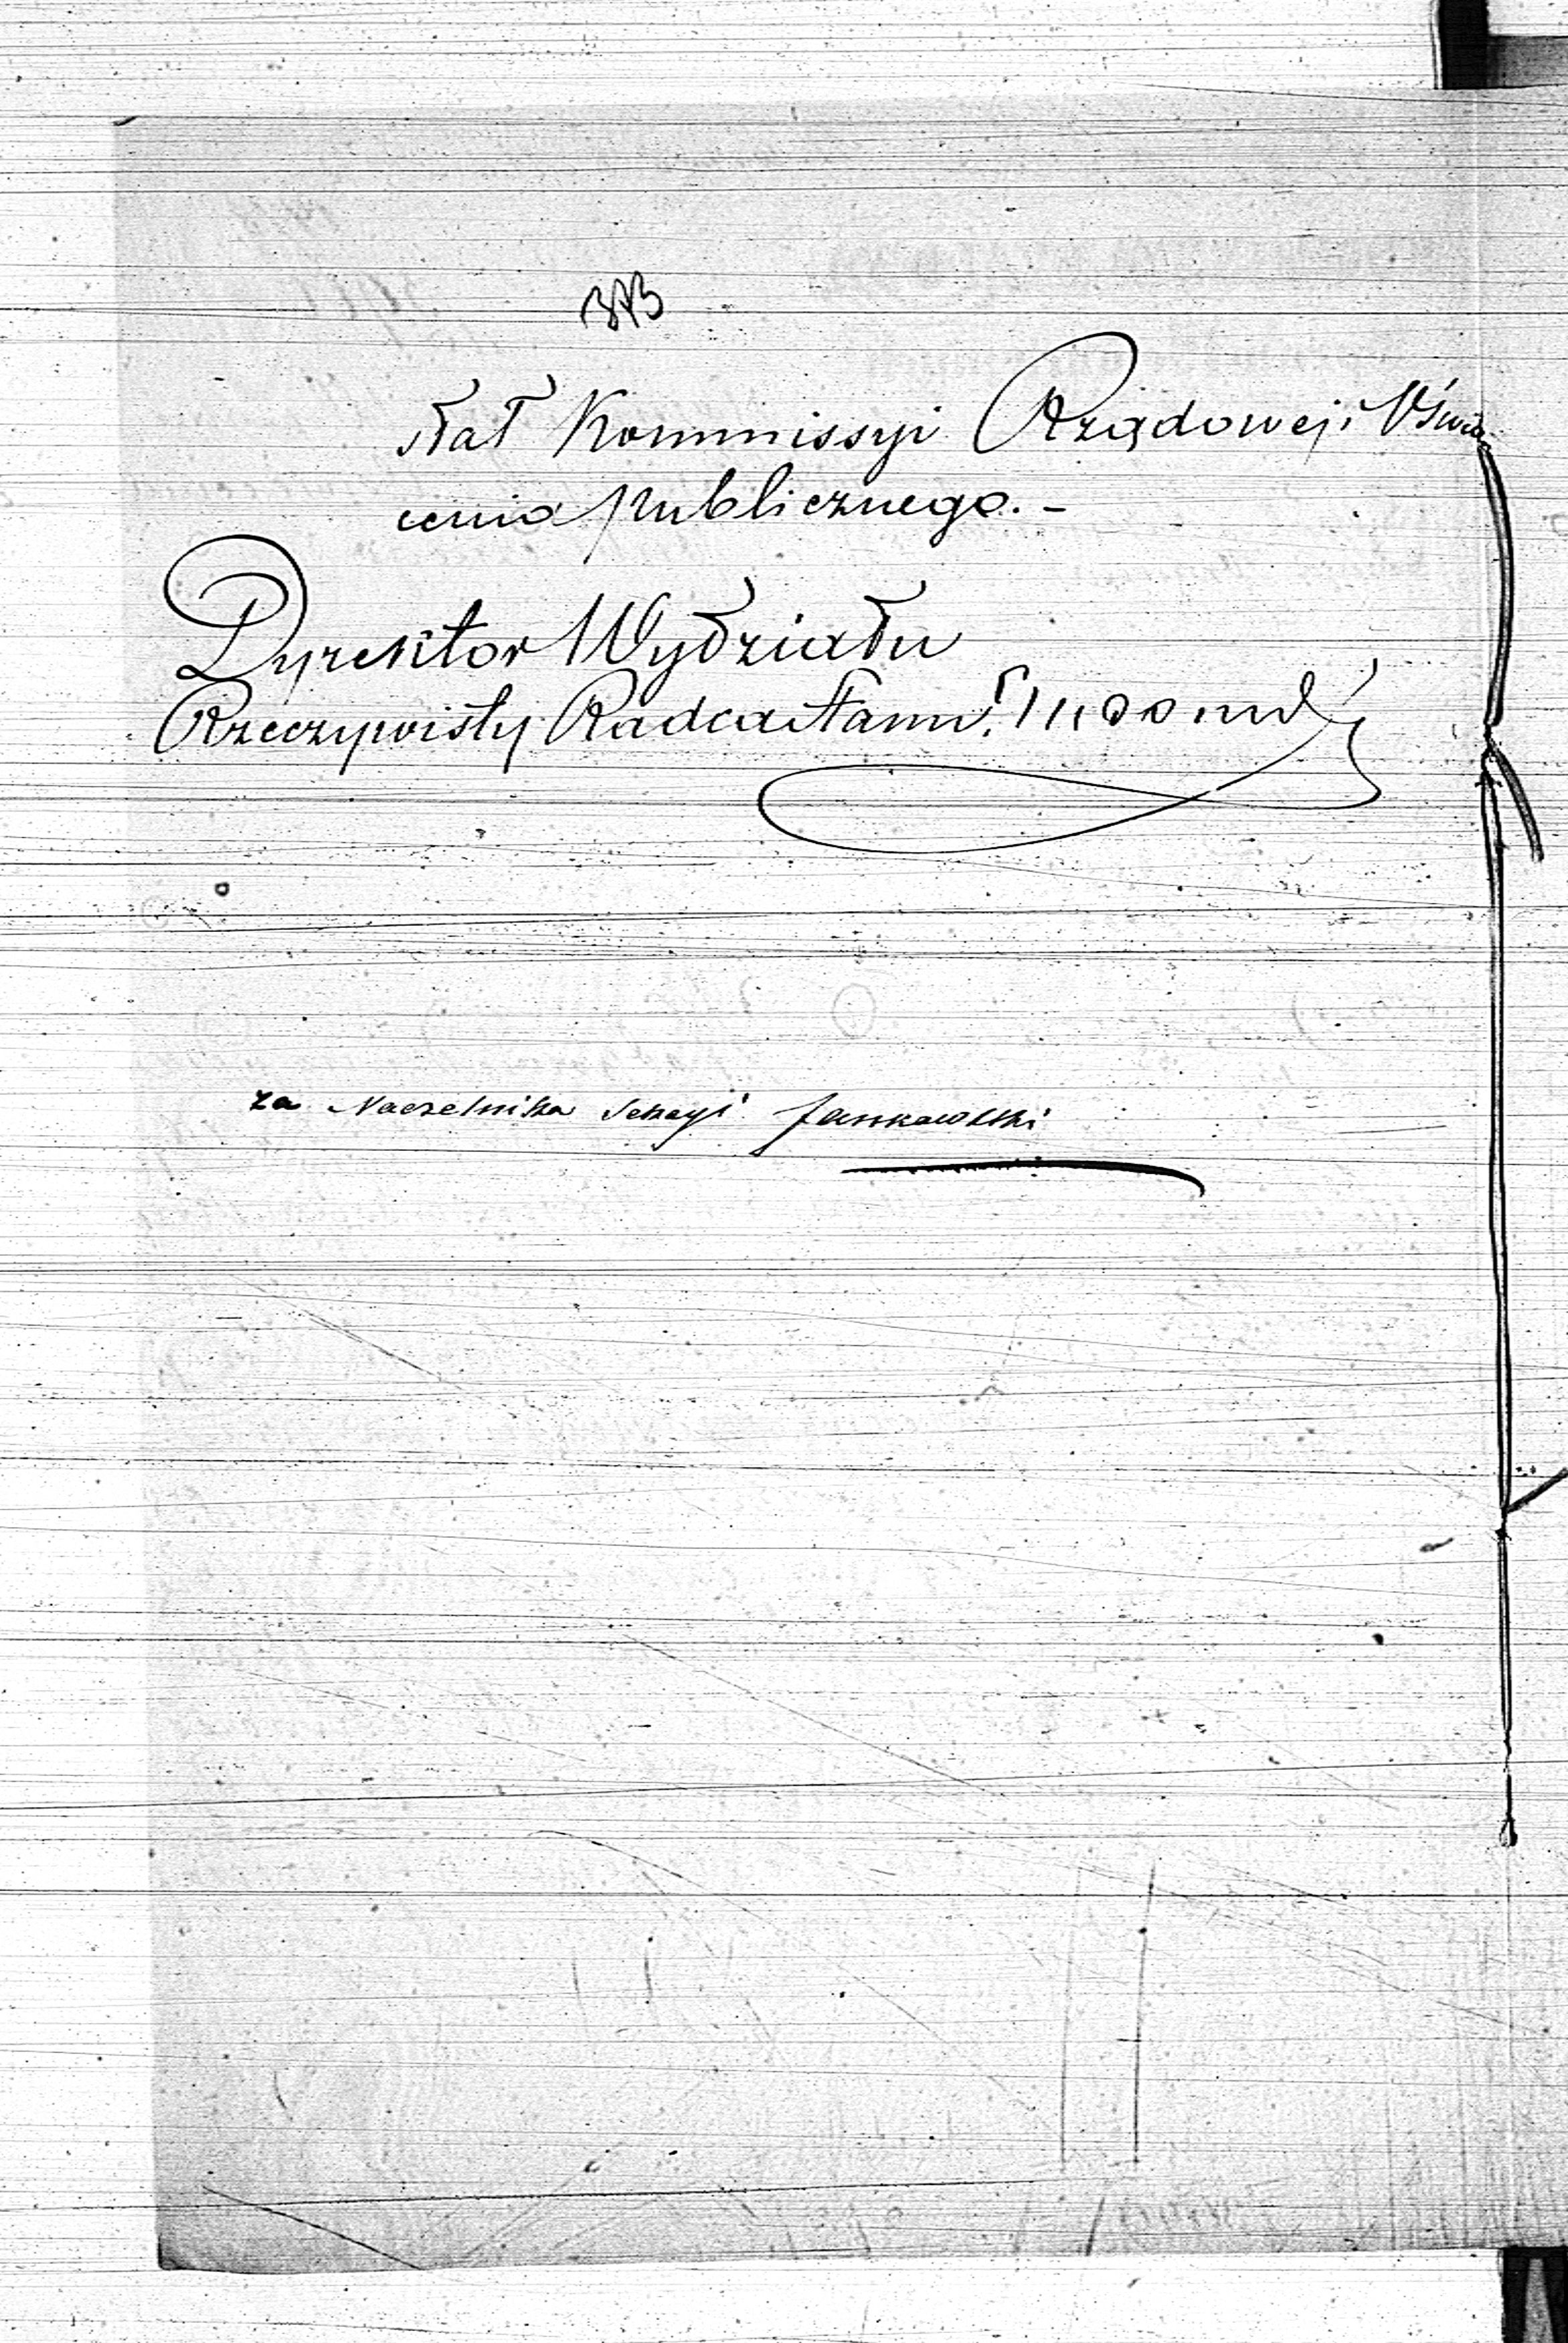 373
dał Kommissyi Rządowej Oświe
cenia publicznego. -
Dyrektor Wydziału
Rzeczywisty Radca Stanu.
za Naczelnika Sekcyi Jankowski